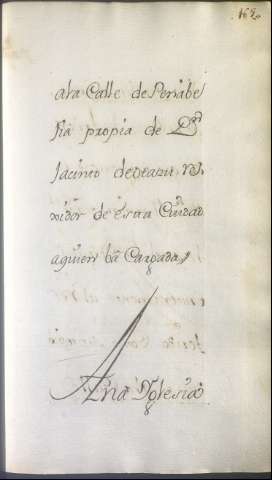 162
ala Calle de Penabe
ña propia de Dn
Jacinto de
xidor de esta Ciudad
aquien ba Cargada
Ana Yglesia